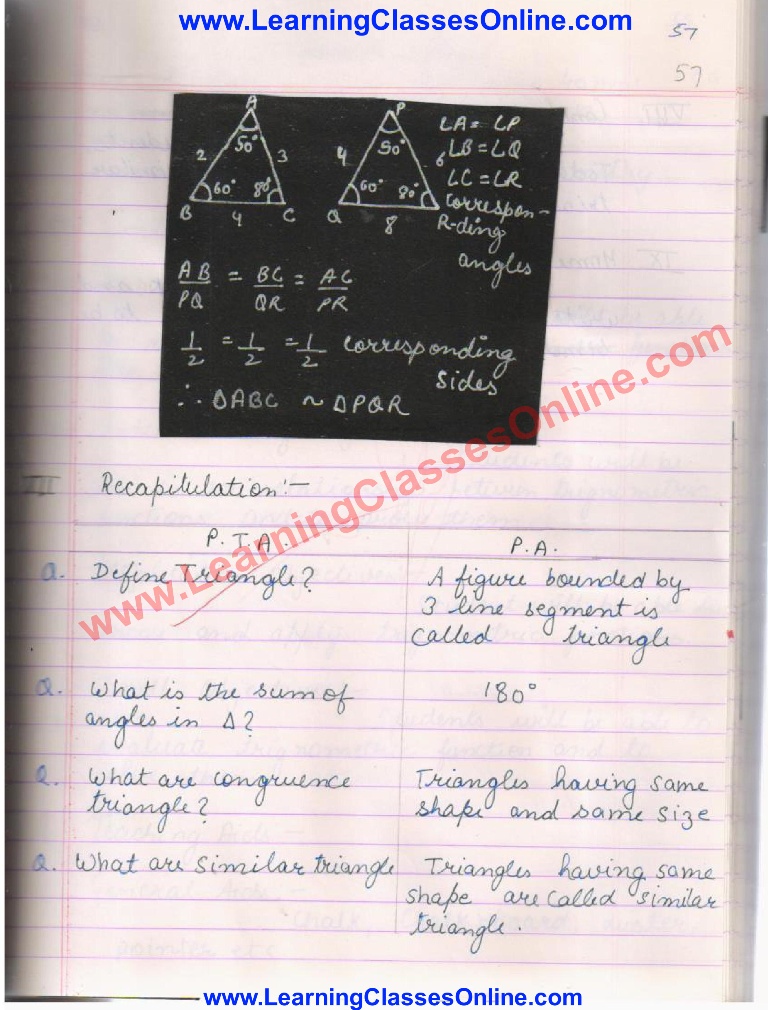 www.LearningClassesOnline.com
57
57
A P
50° 50°
2 3 4 6
60° 80° 60° 80°
B 4 C Q 8 R
∠A = ∠P
∠B = ∠Q
∠C = ∠R
correspon-
-ding
angles
AB/PQ = BC/QR = AC/PR
1/2 = 1/2 = 1/2 corresponding
sides
∴ ΔABC ~ ΔPQR
www.LearningClassesOnline.com
III Recapitulation:-
P.T.A. P.A.
Q. Define Triangle? A figure bounded by
3 line segment is
called triangle
Q. What is the sum of 180°
angles in Δ?
Q. What are congruence Triangles having same
triangle? shape and same size
Q. What are similar triangle Triangles having same
shape are called similar
triangle.
www.LearningClassesOnline.com